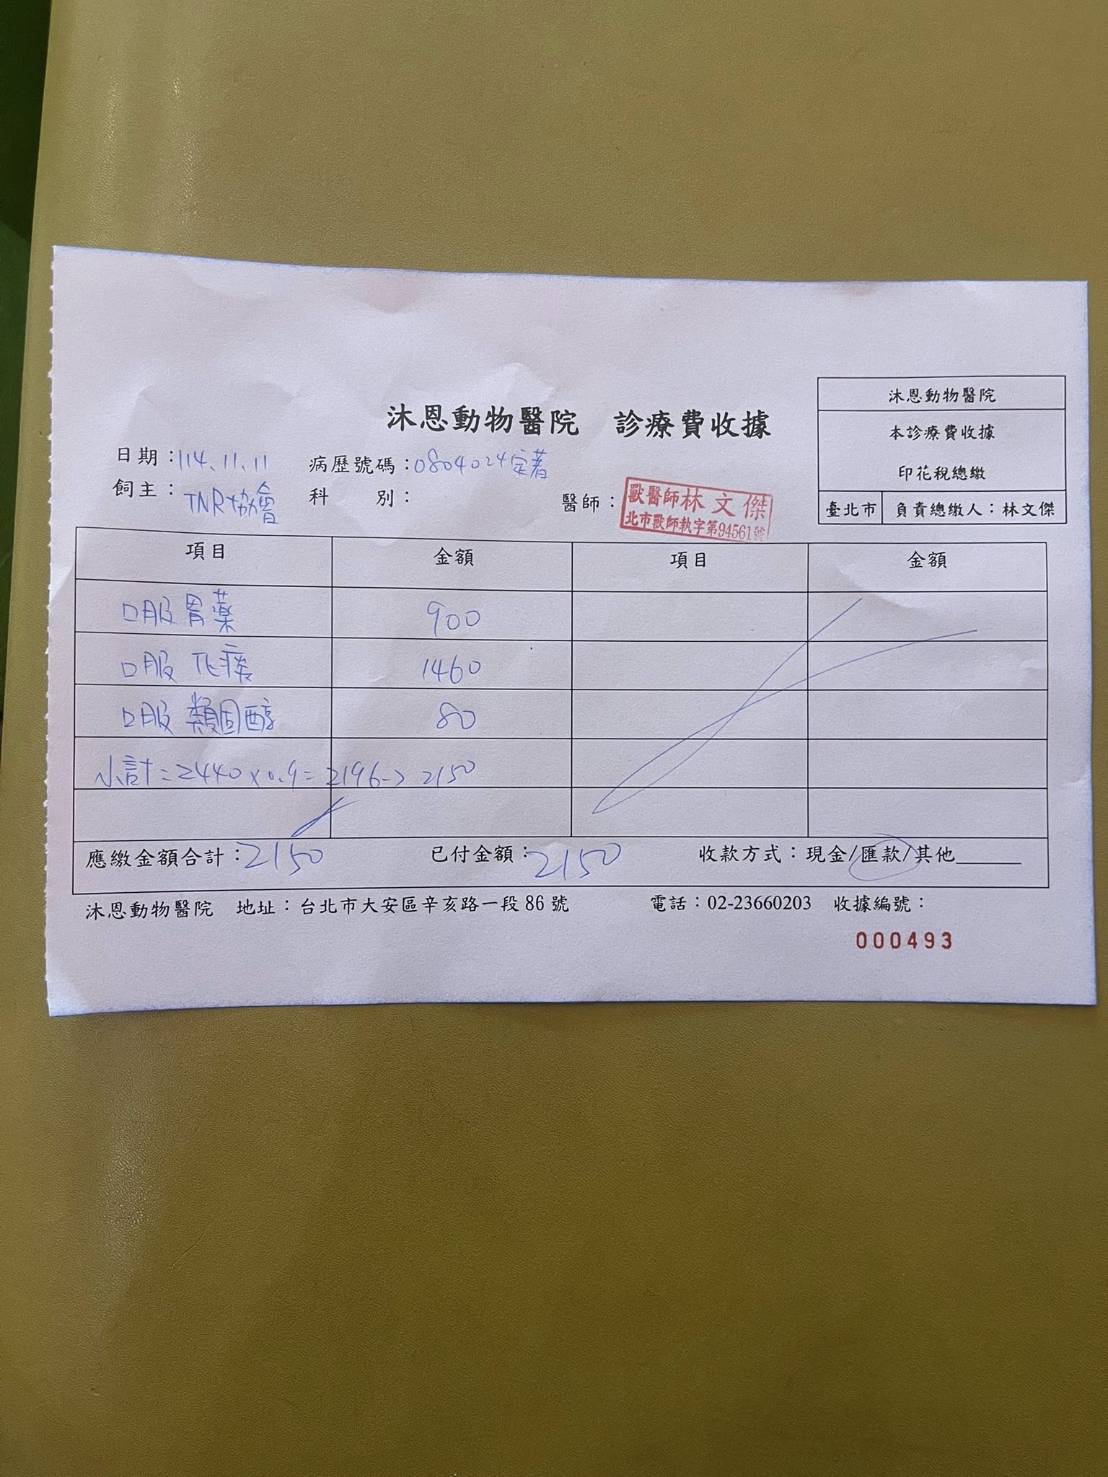 沐恩動物醫院
本診療費收據
印花稅總繳
臺北市 負責總繳人：林文傑
沐恩動物醫院 診療費收據
日期：114.11.11 病歷號碼：0804024
飼主：TNR協會 科 別： 醫師：
獸醫師林文傑
北市獸師執字第94561號
項目 金額 項目 金額
口服胃藥 900
口服化痰 1460
口服類固醇 80
小計=2440x0.9=2196->2150
應繳金額合計：2150 已付金額：2150 收款方式：現金/匯款/其他
沐恩動物醫院 地址：台北市大安區辛亥路一段86號 電話：02-23660203 收據編號：
000493